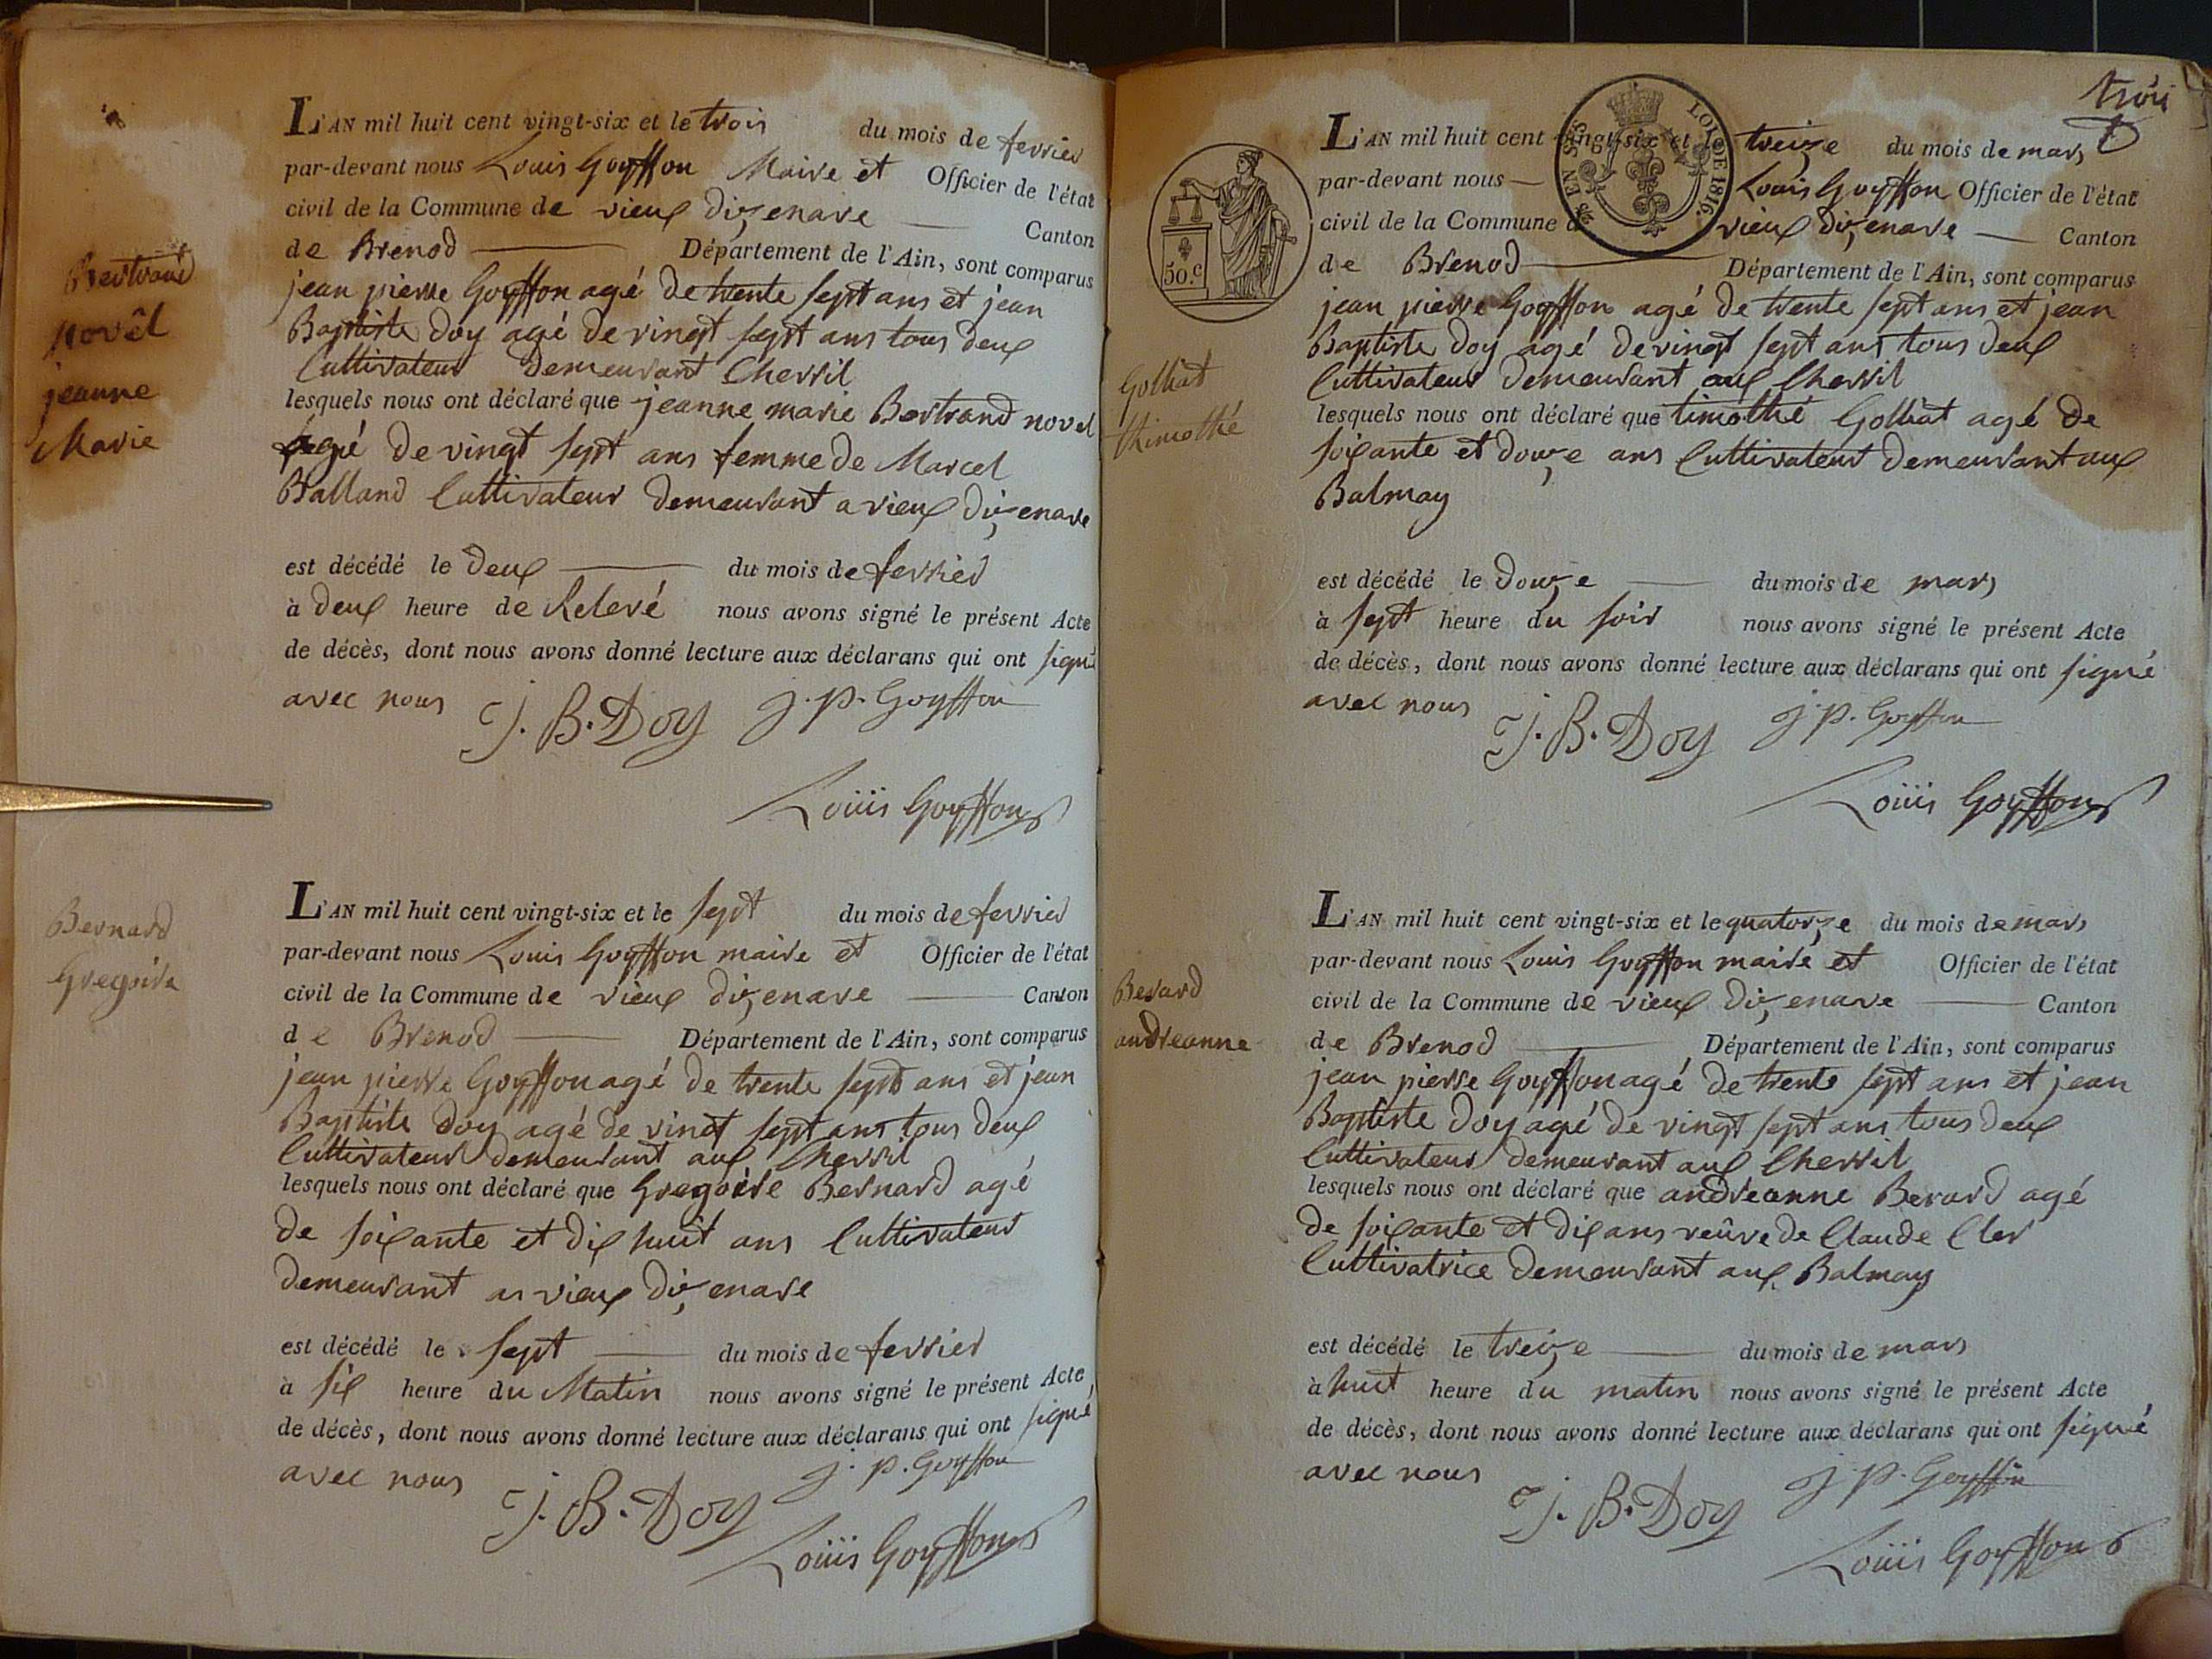 Bertrand
novêl
jeanne
Marie
L'AN mil huit cent vingt-six et le trois du mois de fevrier
par-devant nous Louis Goyffon Maire et Officier de l'état
civil de la Commune de vieux dizenave — Canton
de Brenod — Département de l'Ain, sont comparus
jean pierre Goyffon agé de trente sept ans et jean
Baptiste Doy agé de vingt sept ans tous deux
Cultivateur demeurant Chevril
lesquels nous ont déclaré que jeanne marie Bertrand novel
agé de vingt sept ans femme de Marcel
Balland Cultivateur demeurant a vieux dizenave
est décédé le deux — du mois de fevrier
à deux heure de Relevé nous avons signé le présent Acte
de décès, dont nous avons donné lecture aux déclarans qui ont signé
avec nous J. B. Doy j. p. Goyffon
Louis Goyffon
Bernard
Gregoire
L'AN mil huit cent vingt-six et le sept du mois de fevrier
par-devant nous Louis Goyffon maire et Officier de l'état
civil de la Commune de vieux dizenave — Canton
de Brenod — Département de l'Ain, sont comparus
jean pierre Goyffon agé de trente sept ans et jean
Baptiste Doy agé de vingt sept ans tous deux
Cultivateur demeurant aux Chevril
lesquels nous ont déclaré que Gregoire Bernard agé
de soixante et dix huit ans Cultivateur
demeurant a vieux dizenave
est décédé le sept — du mois de fevrier
à six heure du Matin nous avons signé le présent Acte
de décès, dont nous avons donné lecture aux déclarans qui ont signé
avec nous J. B. Doy j. p. Goyffon
Louis Goyffon
trois
50.c
LOI DE 1816.
EN SUS
Golliat
thimothé
L'AN mil huit cent vingt-six et le treize du mois de mars
par-devant nous — Louis Goyffon Officier de l'état
civil de la Commune de vieux dizenave — Canton
de Brenod — Département de l'Ain, sont comparus
jean pierre Goyffon agé de trente sept ans et jean
Baptiste Doy agé de vingt sept ans tous deux
Cultivateur demeurant aux Chevril
lesquels nous ont déclaré que timothé Golliat agé de
soixante et douze ans Cultivateur demeurant aux
Balmay
est décédé le douze — du mois de mars
à sept heure du soir nous avons signé le présent Acte
de décès, dont nous avons donné lecture aux déclarans qui ont signé
avec nous J. B. Doy j. p. Goyffon
Louis Goyffon
Berard
andreanne
L'AN mil huit cent vingt-six et le quatorze du mois de mars
par-devant nous Louis Goyffon maire et Officier de l'état
civil de la Commune de vieux dizenave — Canton
de Brenod — Département de l'Ain, sont comparus
jean pierre Goyffon agé de trente sept ans et jean
Baptiste Doy agé de vingt sept ans tous deux
Cultivateur demeurant aux Chevril
lesquels nous ont déclaré que andreanne Berard agé
de soixante et dix ans veûve de Claude Cler
Cultivatrice demeurant aux Balmay
est décédé le treize — du mois de mars
à huit heure du matin nous avons signé le présent Acte
de décès, dont nous avons donné lecture aux déclarans qui ont signé
avec nous J. B. Doy j. p. Goyffon
Louis Goyffon